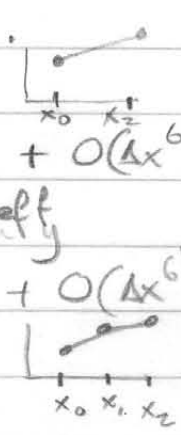 x₀ x₂
+ O(Δx⁶
eff
+ O(Δx⁶
x₀ x₁ x₂